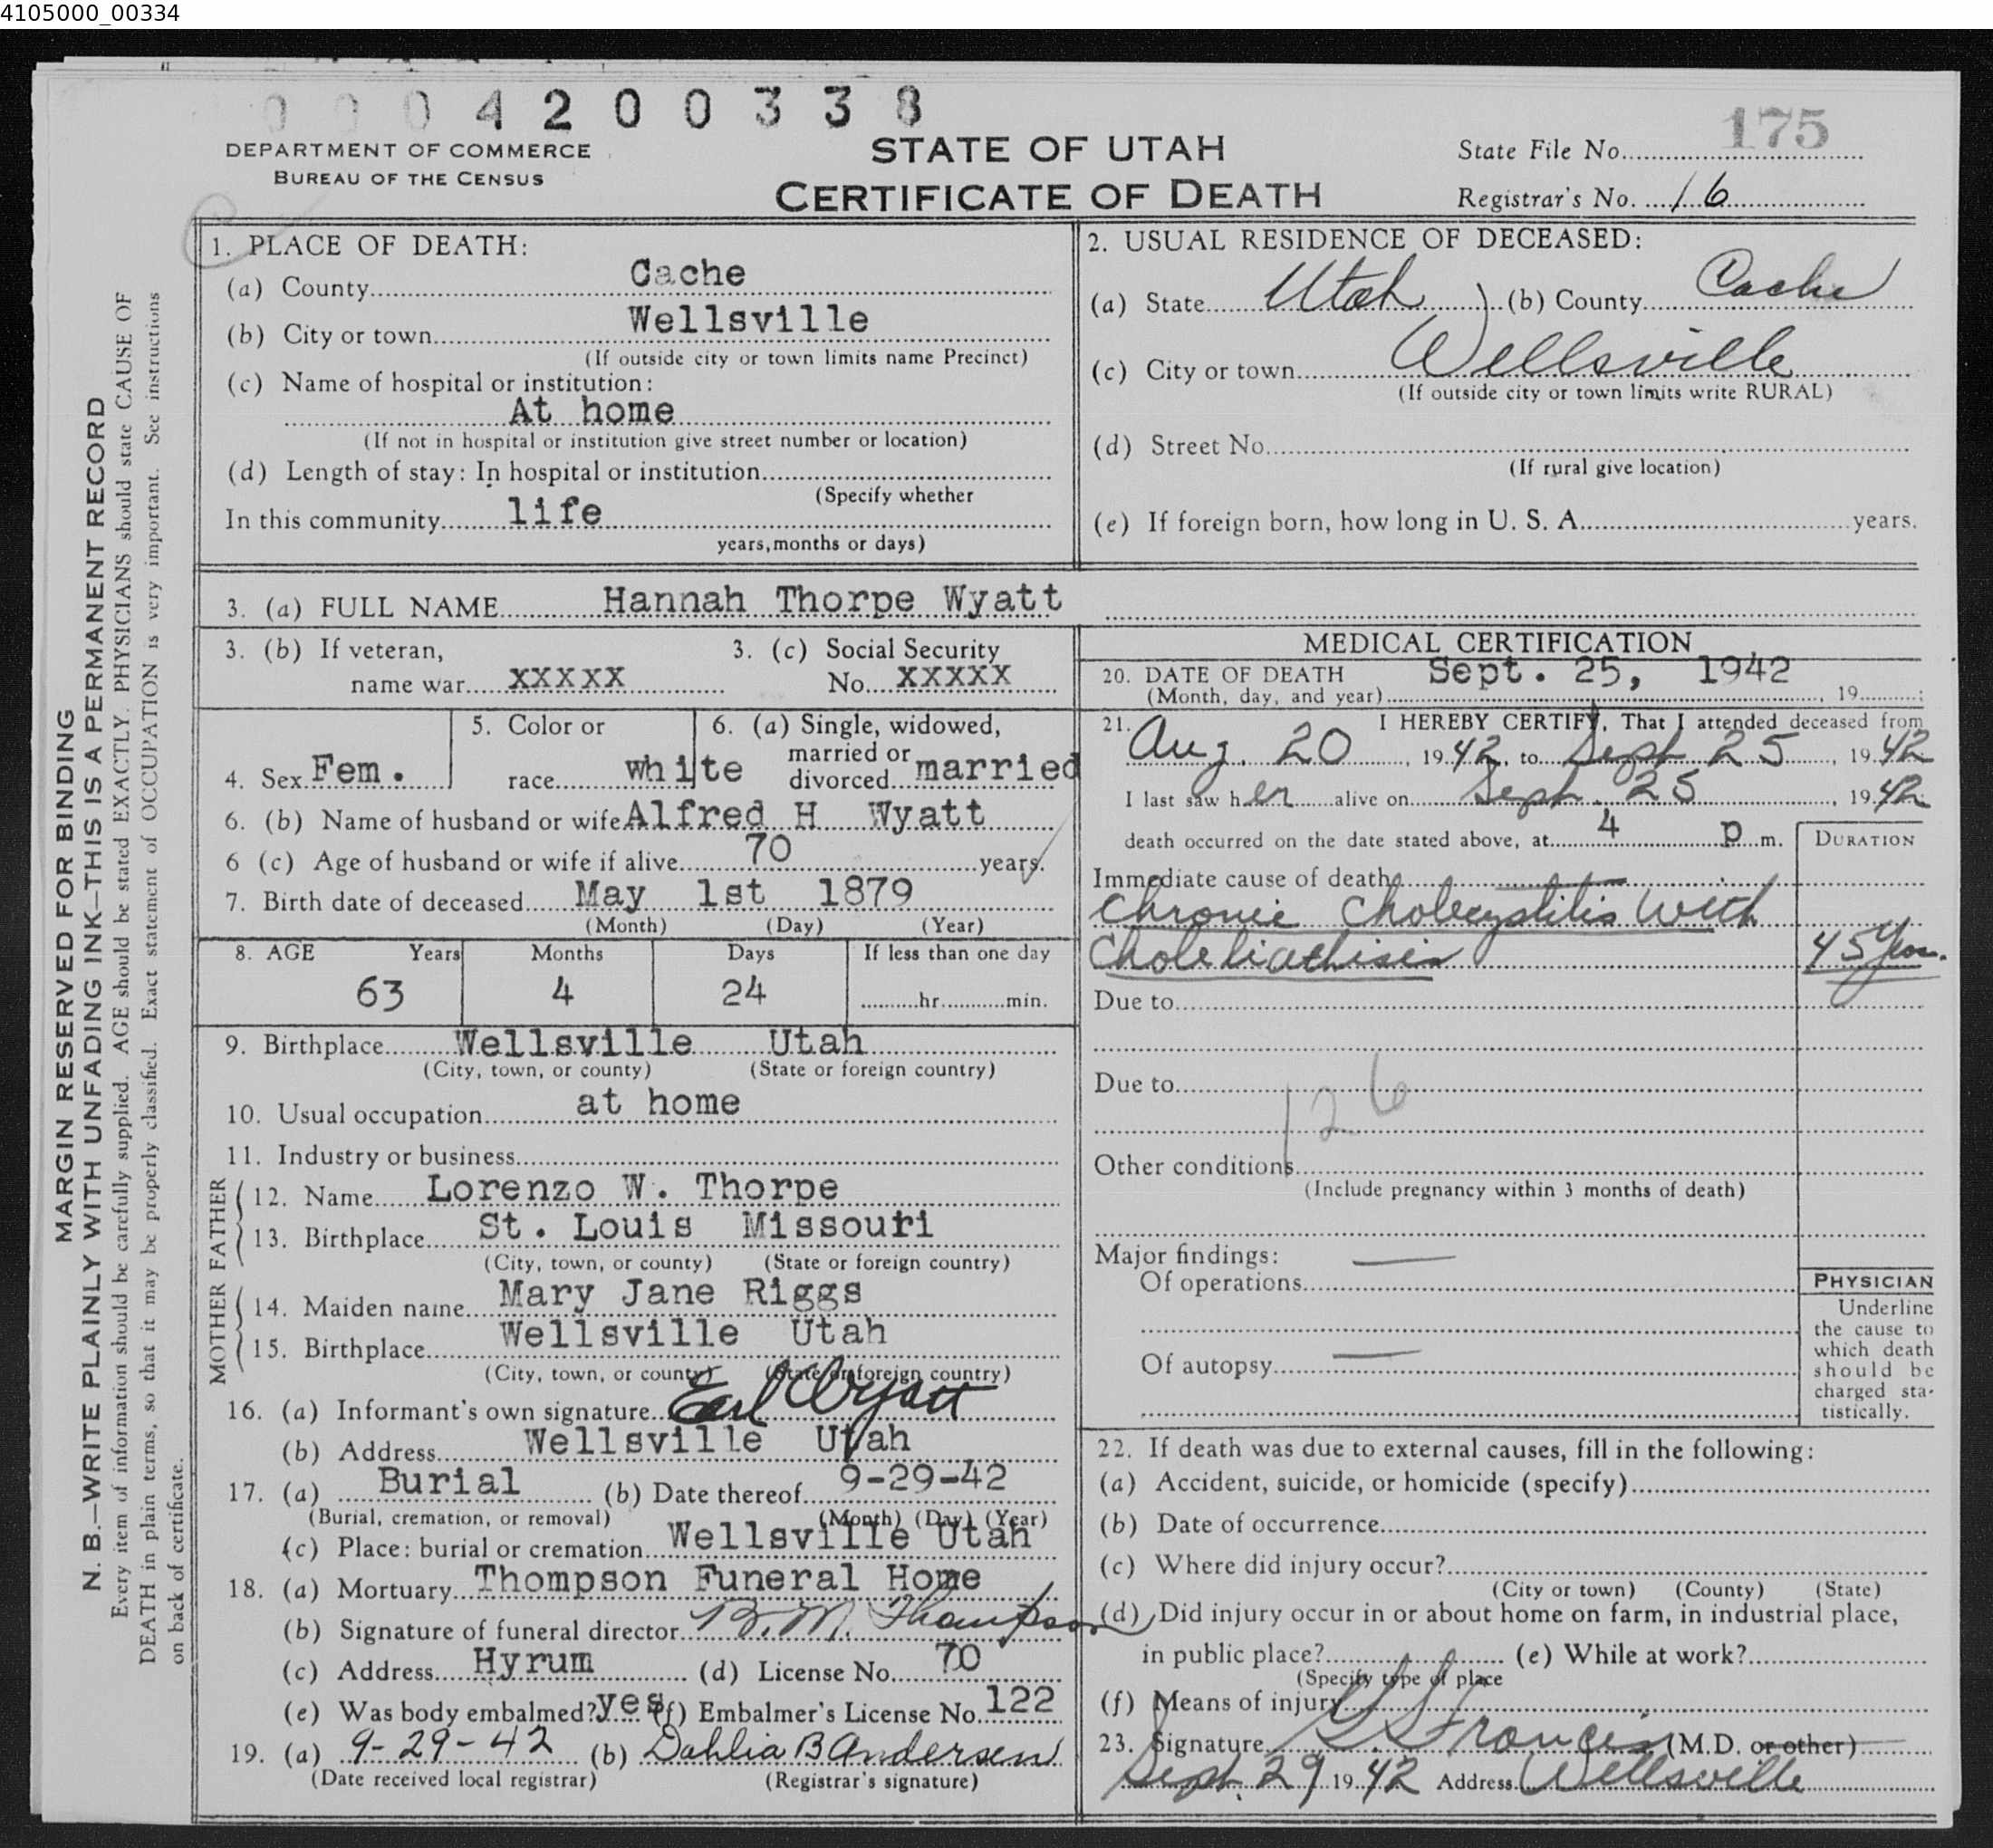 4105000_00334
0004200338
175
DEPARTMENT OF COMMERCE
BUREAU OF THE CENSUS
STATE OF UTAH
CERTIFICATE OF DEATH
State File No.
Registrar's No. 16
MARGIN RESERVED FOR BINDING
N. B.—WRITE PLAINLY WITH UNFADING INK—THIS IS A PERMANENT RECORD
Every item of information should be carefully supplied. AGE should be stated EXACTLY. PHYSICIANS should state CAUSE OF
DEATH in plain terms, so that it may be properly classified. Exact statement of OCCUPATION is very important. See instructions
on back of certificate.
1. PLACE OF DEATH:
(a) County Cache
(b) City or town Wellsville
(If outside city or town limits name Precinct)
(c) Name of hospital or institution:
At home
(If not in hospital or institution give street number or location)
(d) Length of stay: In hospital or institution
(Specify whether
In this community life
years, months or days)
2. USUAL RESIDENCE OF DECEASED:
(a) State Utah (b) County Cache
(c) City or town Wellsville
(If outside city or town limits write RURAL)
(d) Street No.
(If rural give location)
(e) If foreign born, how long in U. S. A. years.
3. (a) FULL NAME Hannah Thorpe Wyatt
3. (b) If veteran,
name war xxxxx
3. (c) Social Security
No. xxxxx
4. Sex Fem.
5. Color or
race white
6. (a) Single, widowed,
married or
divorced married
6. (b) Name of husband or wife Alfred H Wyatt
6 (c) Age of husband or wife if alive 70 years.
7. Birth date of deceased May 1st 1879
(Month) (Day) (Year)
8. AGE Years Months Days If less than one day
63 4 24 hr. min.
9. Birthplace Wellsville Utah
(City, town, or county) (State or foreign country)
10. Usual occupation at home
11. Industry or business
FATHER
12. Name Lorenzo W. Thorpe
13. Birthplace St. Louis Missouri
(City, town, or county) (State or foreign country)
MOTHER
14. Maiden name Mary Jane Riggs
15. Birthplace Wellsville Utah
(City, town, or county) (State or foreign country)
16. (a) Informant's own signature Earl Wyatt
(b) Address Wellsville Utah
17. (a) Burial (b) Date thereof 9-29-42
(Burial, cremation, or removal) (Month) (Day) (Year)
(c) Place: burial or cremation Wellsville Utah
18. (a) Mortuary Thompson Funeral Home
(b) Signature of funeral director B. M. Thompson
(c) Address Hyrum (d) License No. 70
(e) Was body embalmed? yes (f) Embalmer's License No. 122
19. (a) 9-29-42 (b) Dahlia B Andersen
(Date received local registrar) (Registrar's signature)
MEDICAL CERTIFICATION
20. DATE OF DEATH Sept. 25, 1942
(Month, day, and year) , 19 ;
21. I HEREBY CERTIFY, That I attended deceased from
Aug. 20, 1942, to Sept 25, 1942
I last saw her alive on Sept. 25, 1942
death occurred on the date stated above, at 4 p m.
DURATION
Immediate cause of death
Chronic Cholecystitis with
Choleliathisis
45 Yrs.
Due to
Due to
126
Other conditions
(Include pregnancy within 3 months of death)
Major findings: —
Of operations
Of autopsy —
PHYSICIAN
Underline
the cause to
which death
should be
charged sta-
tistically.
22. If death was due to external causes, fill in the following:
(a) Accident, suicide, or homicide (specify)
(b) Date of occurrence
(c) Where did injury occur?
(City or town) (County) (State)
(d) Did injury occur in or about home on farm, in industrial place,
in public place? (e) While at work?
(Specify type of place
(f) Means of injury
23. Signature G S Francis (M.D. or other)
Sept. 29 1942 Address Wellsville